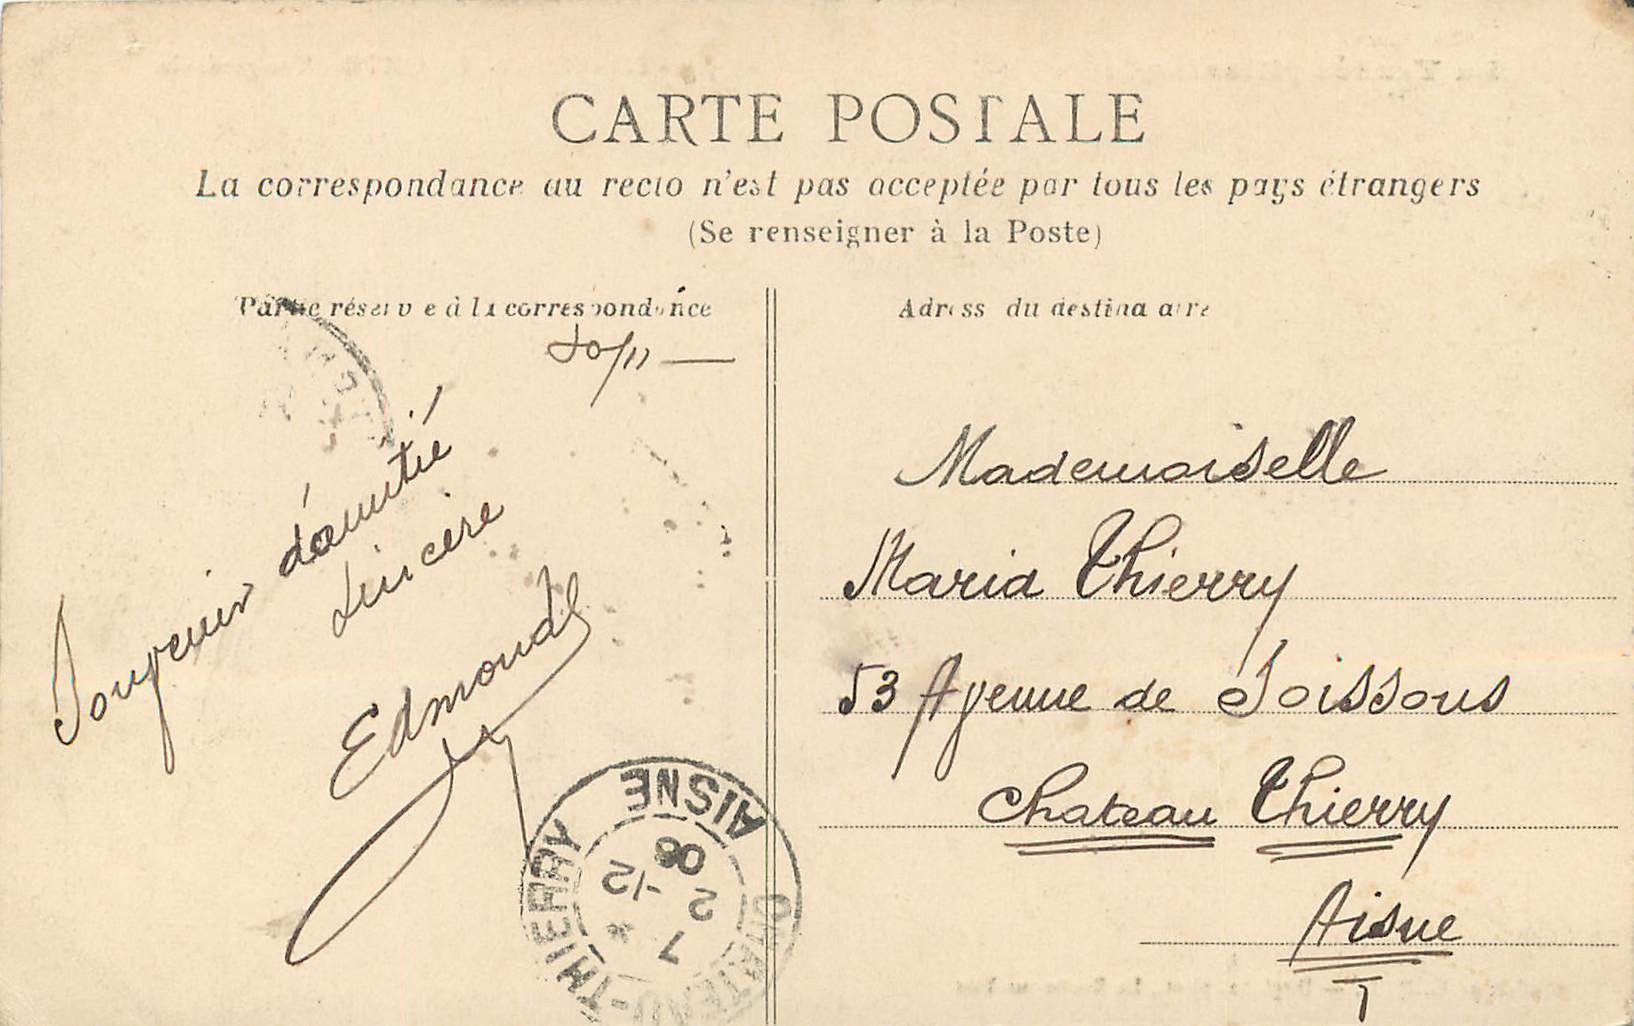 CARTE POSTALE
La correspondance au recto n'est pas acceptée par tous les pays étrangers
(Se renseigner à la Poste)
Partie réservée à la correspondance
Adresse du destinataire
Souvenir d'amitié
sincère
Edmond
Mademoiselle
Maria Thierry
53 Avenue de Soissons
Chateau Thierry
Aisne
CHATEAU-THIERRY
AISNE
7
2 -12
06